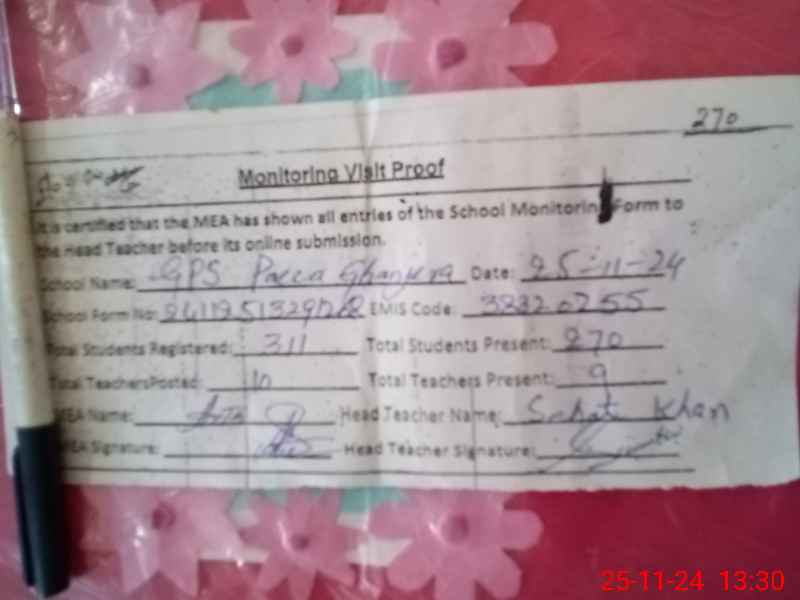 270
Monitoring Visit Proof
It is certified that the MEA has shown all entries of the School Monitoring Form to
the Head Teacher before its online submission.
School Name: GPS Pacca Date: 25-11-24
School Form No: EMIS Code:
Total Students Registered: 311 Total Students Present: 270
Total TeachersPosted: 10 Total Teachers Present: 9
MEA Name: Head Teacher Name: Khan
MEA Signature: Head Teacher Signature:
25-11-24 13:30